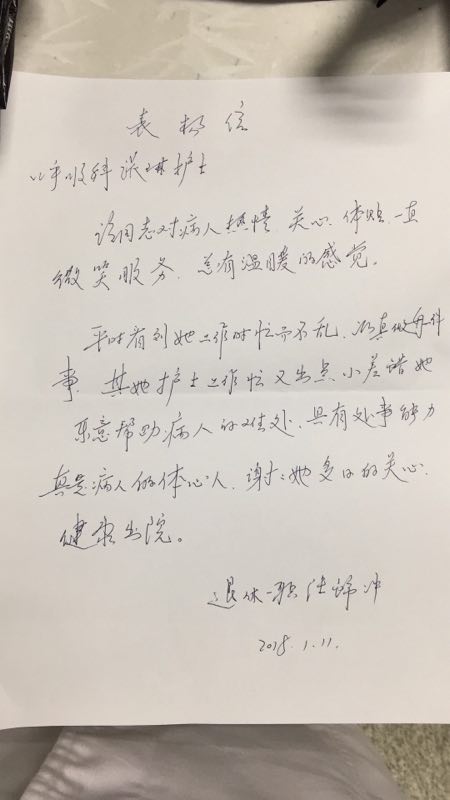 表扬信
呼吸科 护士
该同志对病人热情 关心 体贴 一直
微笑服务，总有温暖的感觉。
平时看到她工作时忙而不乱，认真做每件
事，其她护士工作忙又出点小差错她
乐意帮助病人的难处，具有处事能力
真是病人的体心人，谢谢她多日的关心，
健康出院。
退休一职
2018.1.11.